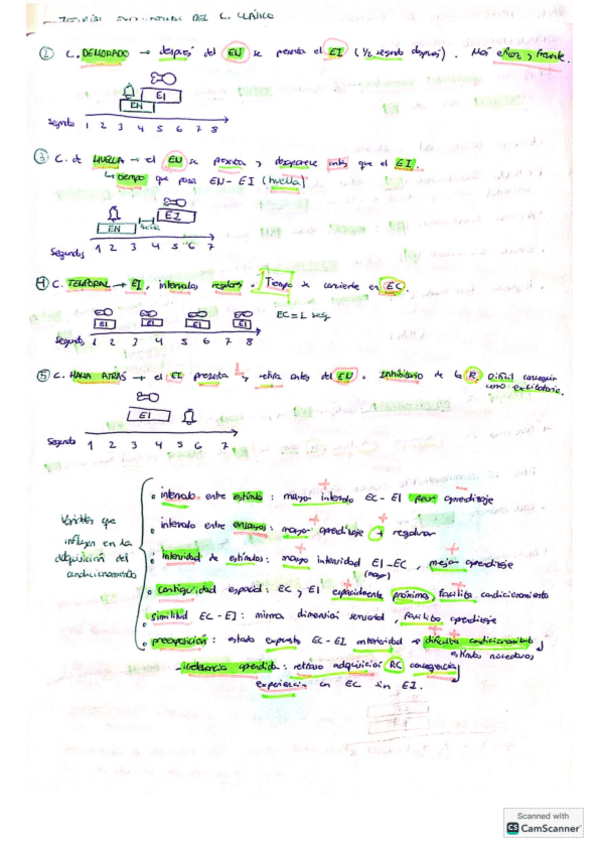 DEL C. CLÁSICO
② C. DEMORADO → después del EN se presenta el EI (1/2 segundo después). Más eficaz y frente.
EI
EN
Segundo 1 2 3 4 5 6 7 8
③ C. de HUELLA → el EN se presenta y desaparece antes que el EI.
↳ tiempo que pasa EN-EI (huella)
EN
EI
Segundos 1 2 3 4 5 6 7
4) C. TEMPORAL → EI, intervalos regulares. Tiempo se convierte en EC.
EI EI EI EI
EC = 1 seg
Segundos 1 2 3 4 5 6 7 8
⑤ C. HACIA ATRÁS → el EI presenta y retira antes del EN. Inhibitorio de la R. Difícil conseguir
como excitatorio.
EI
Segundo 1 2 3 4 5 6 7
Variables que
influyen en la
adquisición del
condicionamiento
intervalo entre estímulo: mayor intervalo EC-EI peor aprendizaje
intervalo entre ensayos: mayor aprendizaje + regular
intensidad de estímulos: mayor intensidad EI-EC, mejor aprendizaje
(mayor)
contiguidad espacial: EC y EI espacialmente próximos, facilita condicionamiento
similitud EC-EI: misma dimensión sensorial, facilita aprendizaje
preexposición: estado expuesto EC-EI anterioridad → dificulta condicionamiento
estímulos novedosos
- irrelevancia aprendida: retraso adquisición RC consecuencia
experiencia con EC sin EI.
Scanned with
CS CamScanner